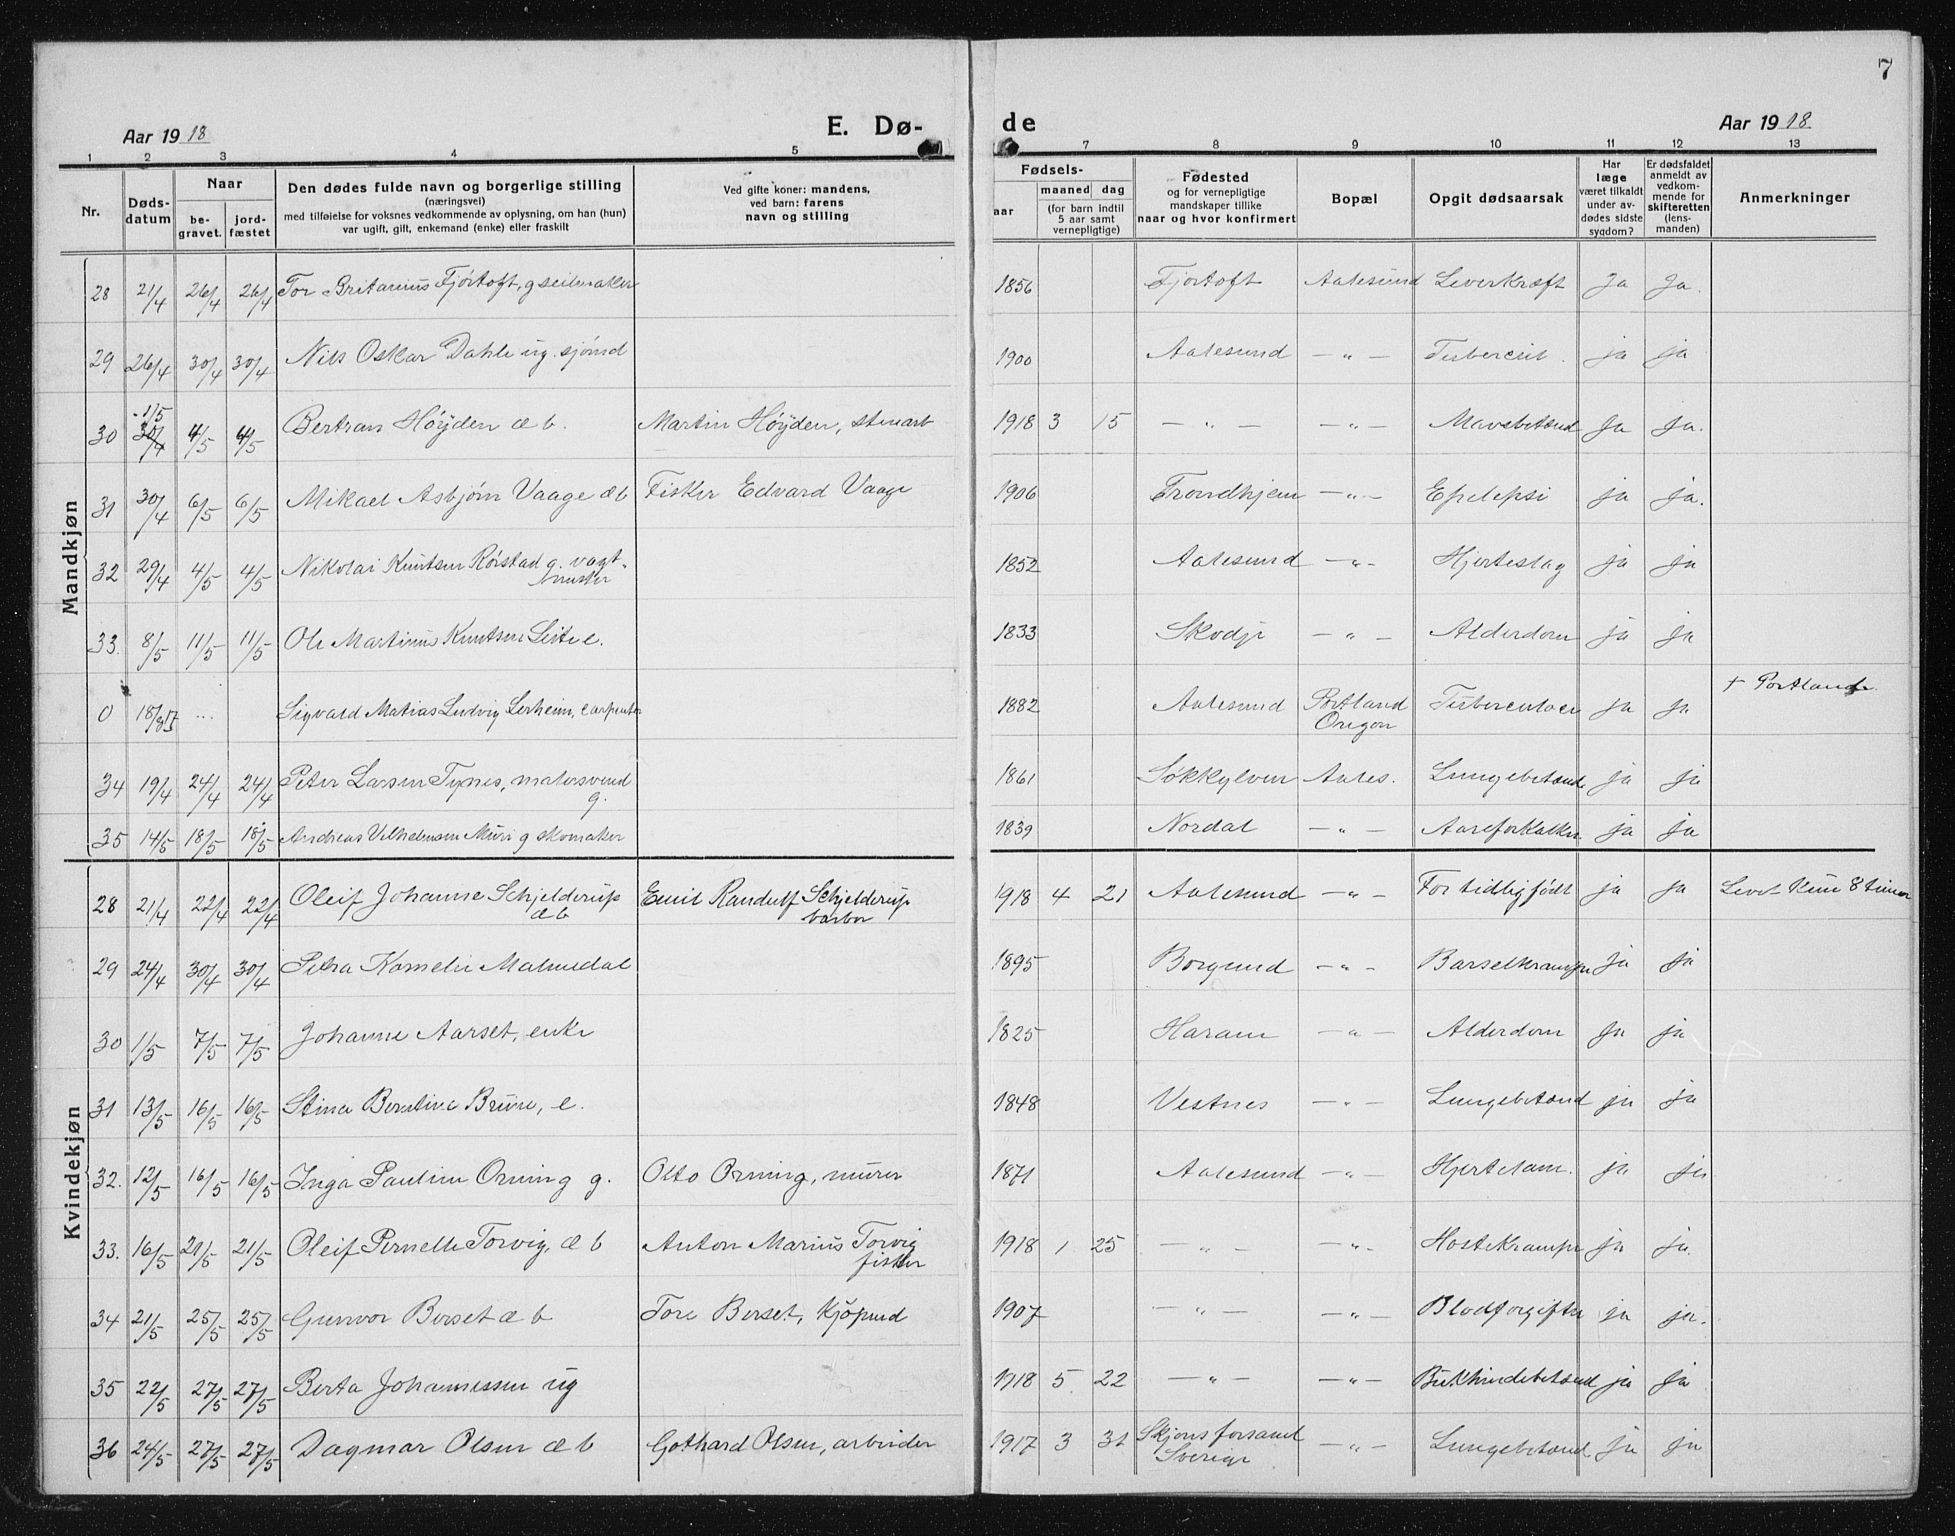 7
Aar 1918 E. Dø- de Aar 1918
1 2 3 4 5 7 8 9 10 11 12 13
Nr.
Døds-
datum
Naar
be-
gravet.
jord-
fæstet
Den dødes fulde navn og borgerlige stilling
(næringsvei)
med tilføielse for voksnes vedkommende av oplysning, om han (hun)
var ugift, gift, enkemand (enke) eller fraskilt
Ved gifte koner: mandens,
ved barn: farens
navn og stilling
Fødsels-
aar
maaned
dag
(for barn indtil
5 aar samt
vernepligtige)
Fødested
og for vernepligtige
mandskaper tillike
naar og hvor konfirmert
Bopæl
Opgit dødsaarsak
Har
læge
været tilkaldt
under av-
dødes sidste
sygdom?
Er dødsfaldet
anmeldt av
vedkom-
mende for
skifteretten
(lens-
manden)
Anmerkninger
Mandkjøn
28 21/4 26/4 26/4 Tor Britanius Fjørtoft, g seilmaker 1856 Fjørtoft Aalesund Leverkræft Ja Ja.
29 26/4 30/4 30/4 Nils Oskar Dahle ug. sjømd 1900 Aalesund — " — ja ja
1/5
30 30/4 4/5 4/5 Bertran Höyden æ b. Martin Höyden, stuuart 1918 3 15 — " — — " — Mavebetænd Ja Ja.
31 30/4 6/5 6/5 Mikael Asbjörn Vaage æ b Fisker Edvard Vaage 1906 Trondhjem — " — Epelepsi ja ja.
32 29/4 4/5 4/5 Nikolai Knutsen Rörstad g. vagt-
mester 1852 Aalesund — " — Hjerteslag ja ja
33. 8/5 11/5 11/5 Ole Martinus Knutsen Leite e. 1833 Skodje — " — Alderdom ja ja
0 18/9 17 ... Sigvard Matias Ludvig Lerheim, carpenter 1882 Aalesund Portland
Oregon Tuberculoer ja ja + Portland.
34 19/4 24/4 24/4 Peter Larsen Tynes, malersvend
g. 1861 Søkkylven Aales. Lungebetænde ja ja
35 14/5 18/5 18/5 Andreas Vilhelmsen Muri g skomaker 1839 Nordal — " — Aareforkalkn. ja ja
Kvindekjøn
28 21/4 22/4 22/4 Oleif Johanne Schjelderup
æ b Emil Randulf Schjelderup
barber 1918 4 21 Aalesund — " — For tidlig født ja ja Levet kun 8 timer
29 24/4 30/4 30/4 Petra Kornelie Malmedal 1895 Borgund — " — Barselkrampe ja ja
30 1/5 7/5 7/5 Johanne Aarset, enke 1825 Haram — " — Alderdom Ja ja
31 13/5 16/5 16/5 Stina Berntine Brune, e. 1848 Vestnes — " — Lungebetænd ja ja
32. 12/5 16/5 16/5 Inga Pauline Orning g. Otto Orning, murer 1871 Aalesund — " — Hjertelam. ja ja
33. 16/5 21/5 21/5 Oleif Pernelle Torvig, æ b Anton Marius Torvig
fisker 1918 1 25 — " — — " — Hostekrampe ja ja.
34 21/5 25/5 25/5 Gunvor Berset æ b Tore Berset, Kjöpmd 1907 — " — — " — Blodforgiftn ja ja.
35 22/5 27/5 27/5 Berta Johannessen ug 1918 5 22 — " — — " — Bukhindebetænd ja ja
36 24/5 27/5 27/5 Dagmar Olsen æ b Gothard Olsen, arbeider 1917 3 31 Skjöns forsaml
Sverige — " — Lungebetænd ja ja